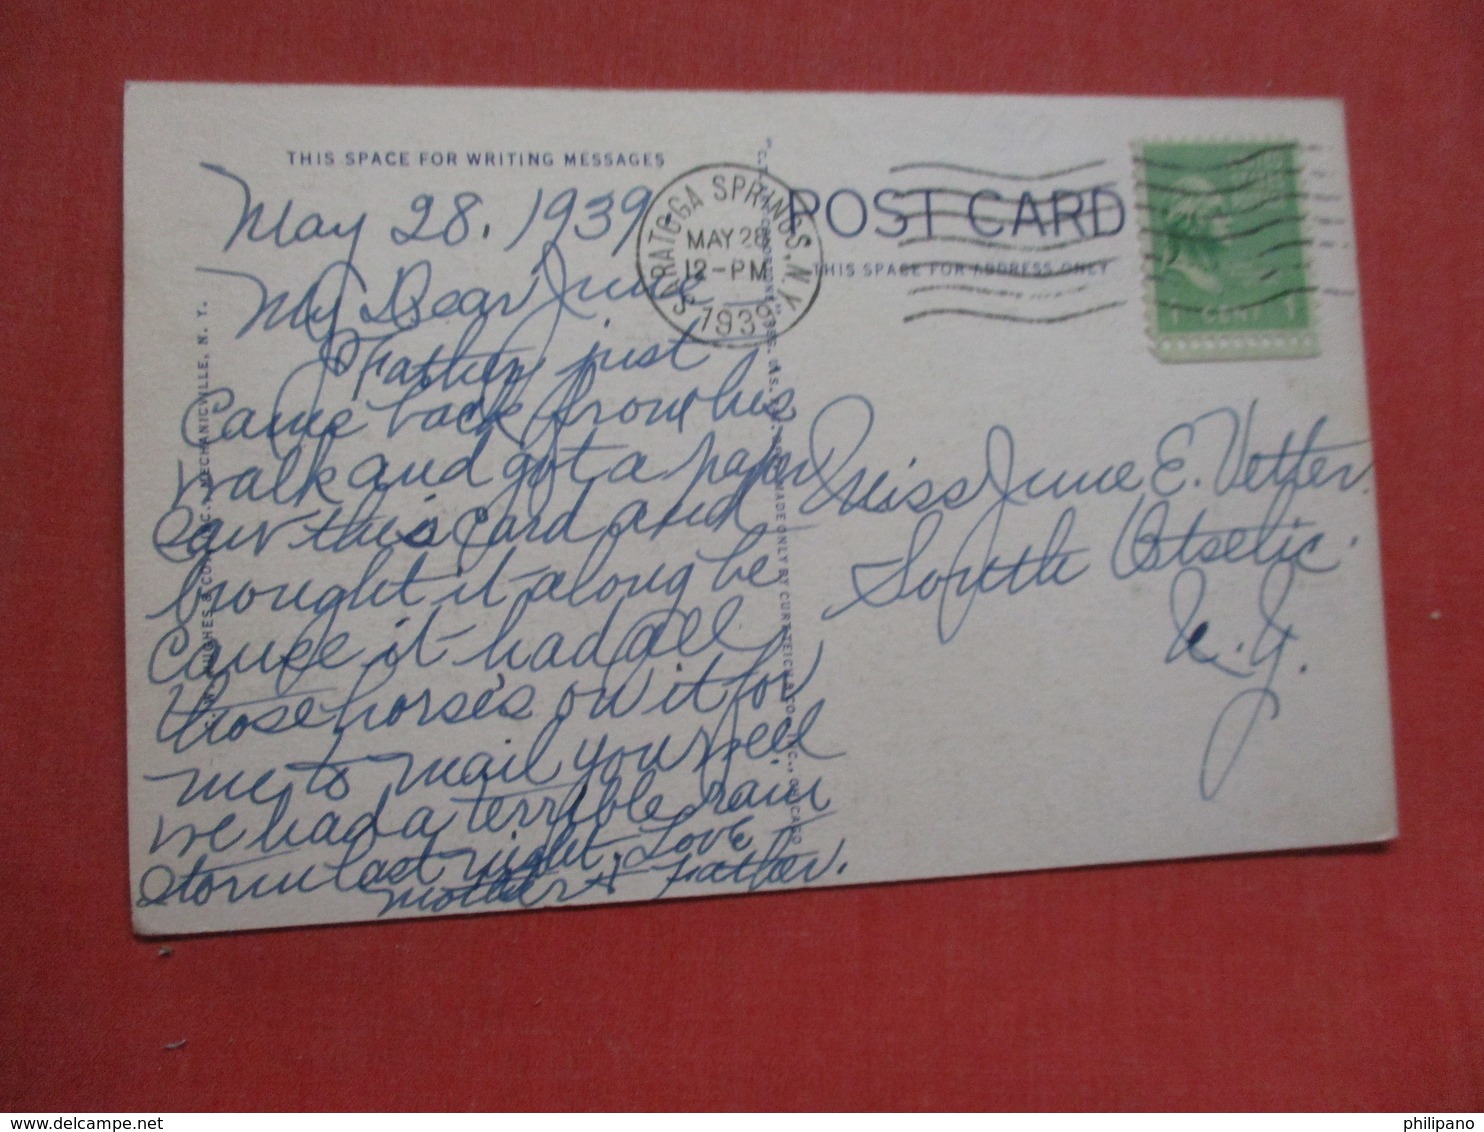 THIS SPACE FOR WRITING MESSAGES
May 28, 1939
My Dear June
Father just
came back from his
walk and got a paper
saw this card and
brought it along be
cause it had all
those horses on it for
me to mail you. Well
we had a terrible rain
storm last night. Love
Mother & Father.
SARATOGA SPRINGS, N.Y.
MAY 28
12-PM
1939
POST CARD
THIS SPACE FOR ADDRESS ONLY
1 CENT 1
Miss June E. Vetter
South Otselic
N.Y.
HUGHES & CO., INC., MECHANICVILLE, N. Y.
MADE ONLY BY CURT TEICH & CO., INC., CHICAGO
delcampe.net
philipano